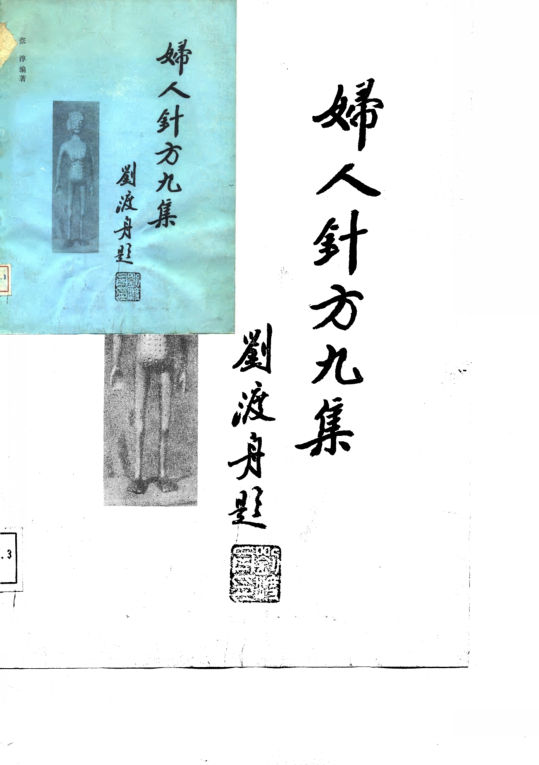 張淳編著
婦人針方九集
劉渡舟題
.3
婦人針方九集
劉渡舟題
.3